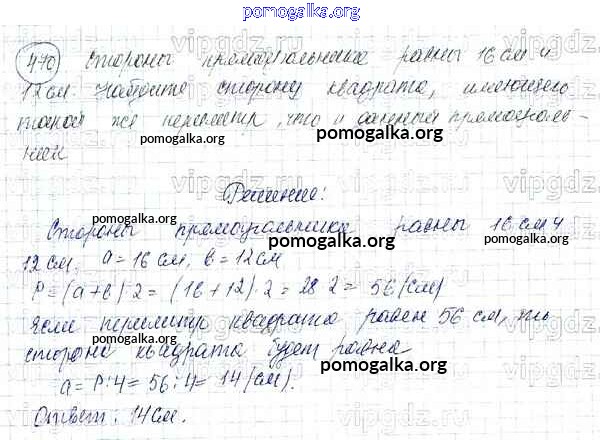 pomogalka.org
470 Стороны прямоугольника равны 16 см и
12 см. Найдите сторону квадрата, имеющего
такой же периметр, что и данный прямоуголь-
ник
pomogalka.org
Решение:
Стороны прямоугольника равны 16 см и
pomogalka.org
12 см. a = 16 см, b = 12 см
P = (a+b)·2 = (16+12)·2 = 28·2 = 56 (см)
Если периметр квадрата равен 56 см, то
сторона квадрата будет равна
a = P:4 = 56:4 = 14 (см).
Ответ: 14 см.
pomogalka.org